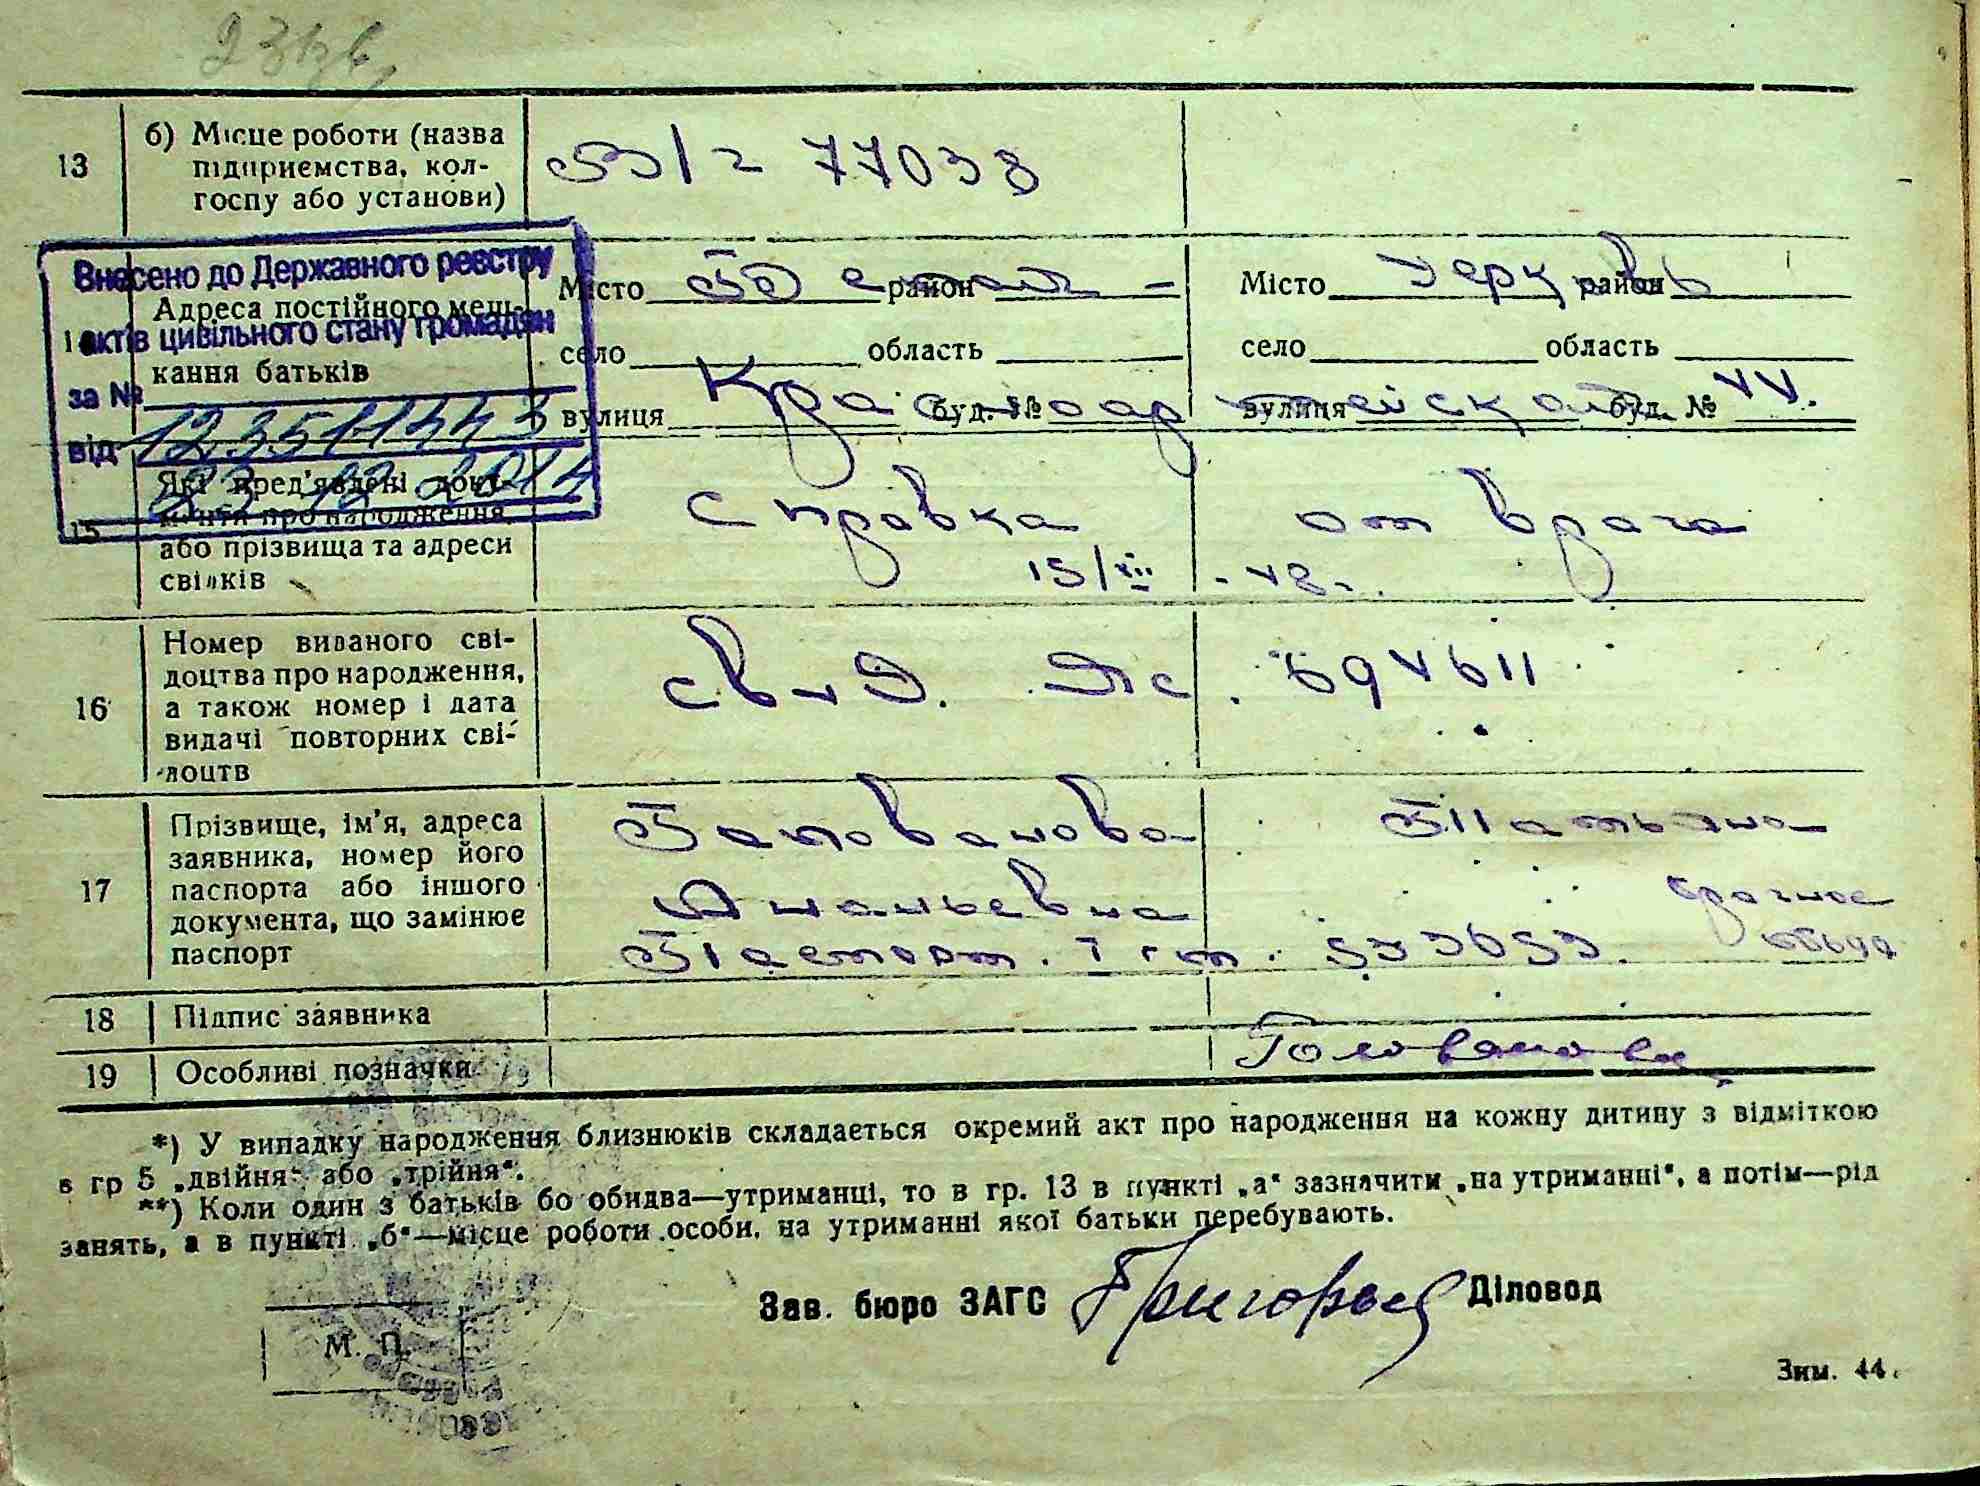 13
б) Місце роботи (назва
підприємства, кол-
госпу або установи)
В/ч 77038
Внесено до Державного реєстру
актів цивільного стану громадян
за № 12351443
від 23 12 2014
Адреса постійного меш-
кання батьків
Місто Белая район
село область
вулиця Красноармейская буд. №
Місто Церковь район
село область
вулиця буд. № 44.
15
Які пред'явлені доку-
менти про народження
або прізвища та адреси
свідків
Справка от врача
15/XII - 48.
16
Номер виданого сві-
доцтва про народження,
а також номер і дата
видачі повторних сві-
доцтв
свид.
17
Прізвище, ім'я, адреса
заявника, номер його
паспорта або іншого
документа, що замінює
паспорт
Голованова Татьяна
Ананьевна
Паспорт. 533653.
брачное
18
Підпис заявника
Голованова
19
Особливі позначки
*) У випадку народження близнюків складається окремий акт про народження на кожну дитину з відміткою
в гр 5 „двійня“ або „трійня“.
**) Коли один з батьків бо обидва—утриманці, то в гр. 13 в пункті „а“ зазначити „на утриманні“, а потім—рід
занять, а в пункті „б“—місце роботи особи, на утриманні якої батьки перебувають.
Зав. бюро ЗАГС Діловод
М. П.
Зим. 44.